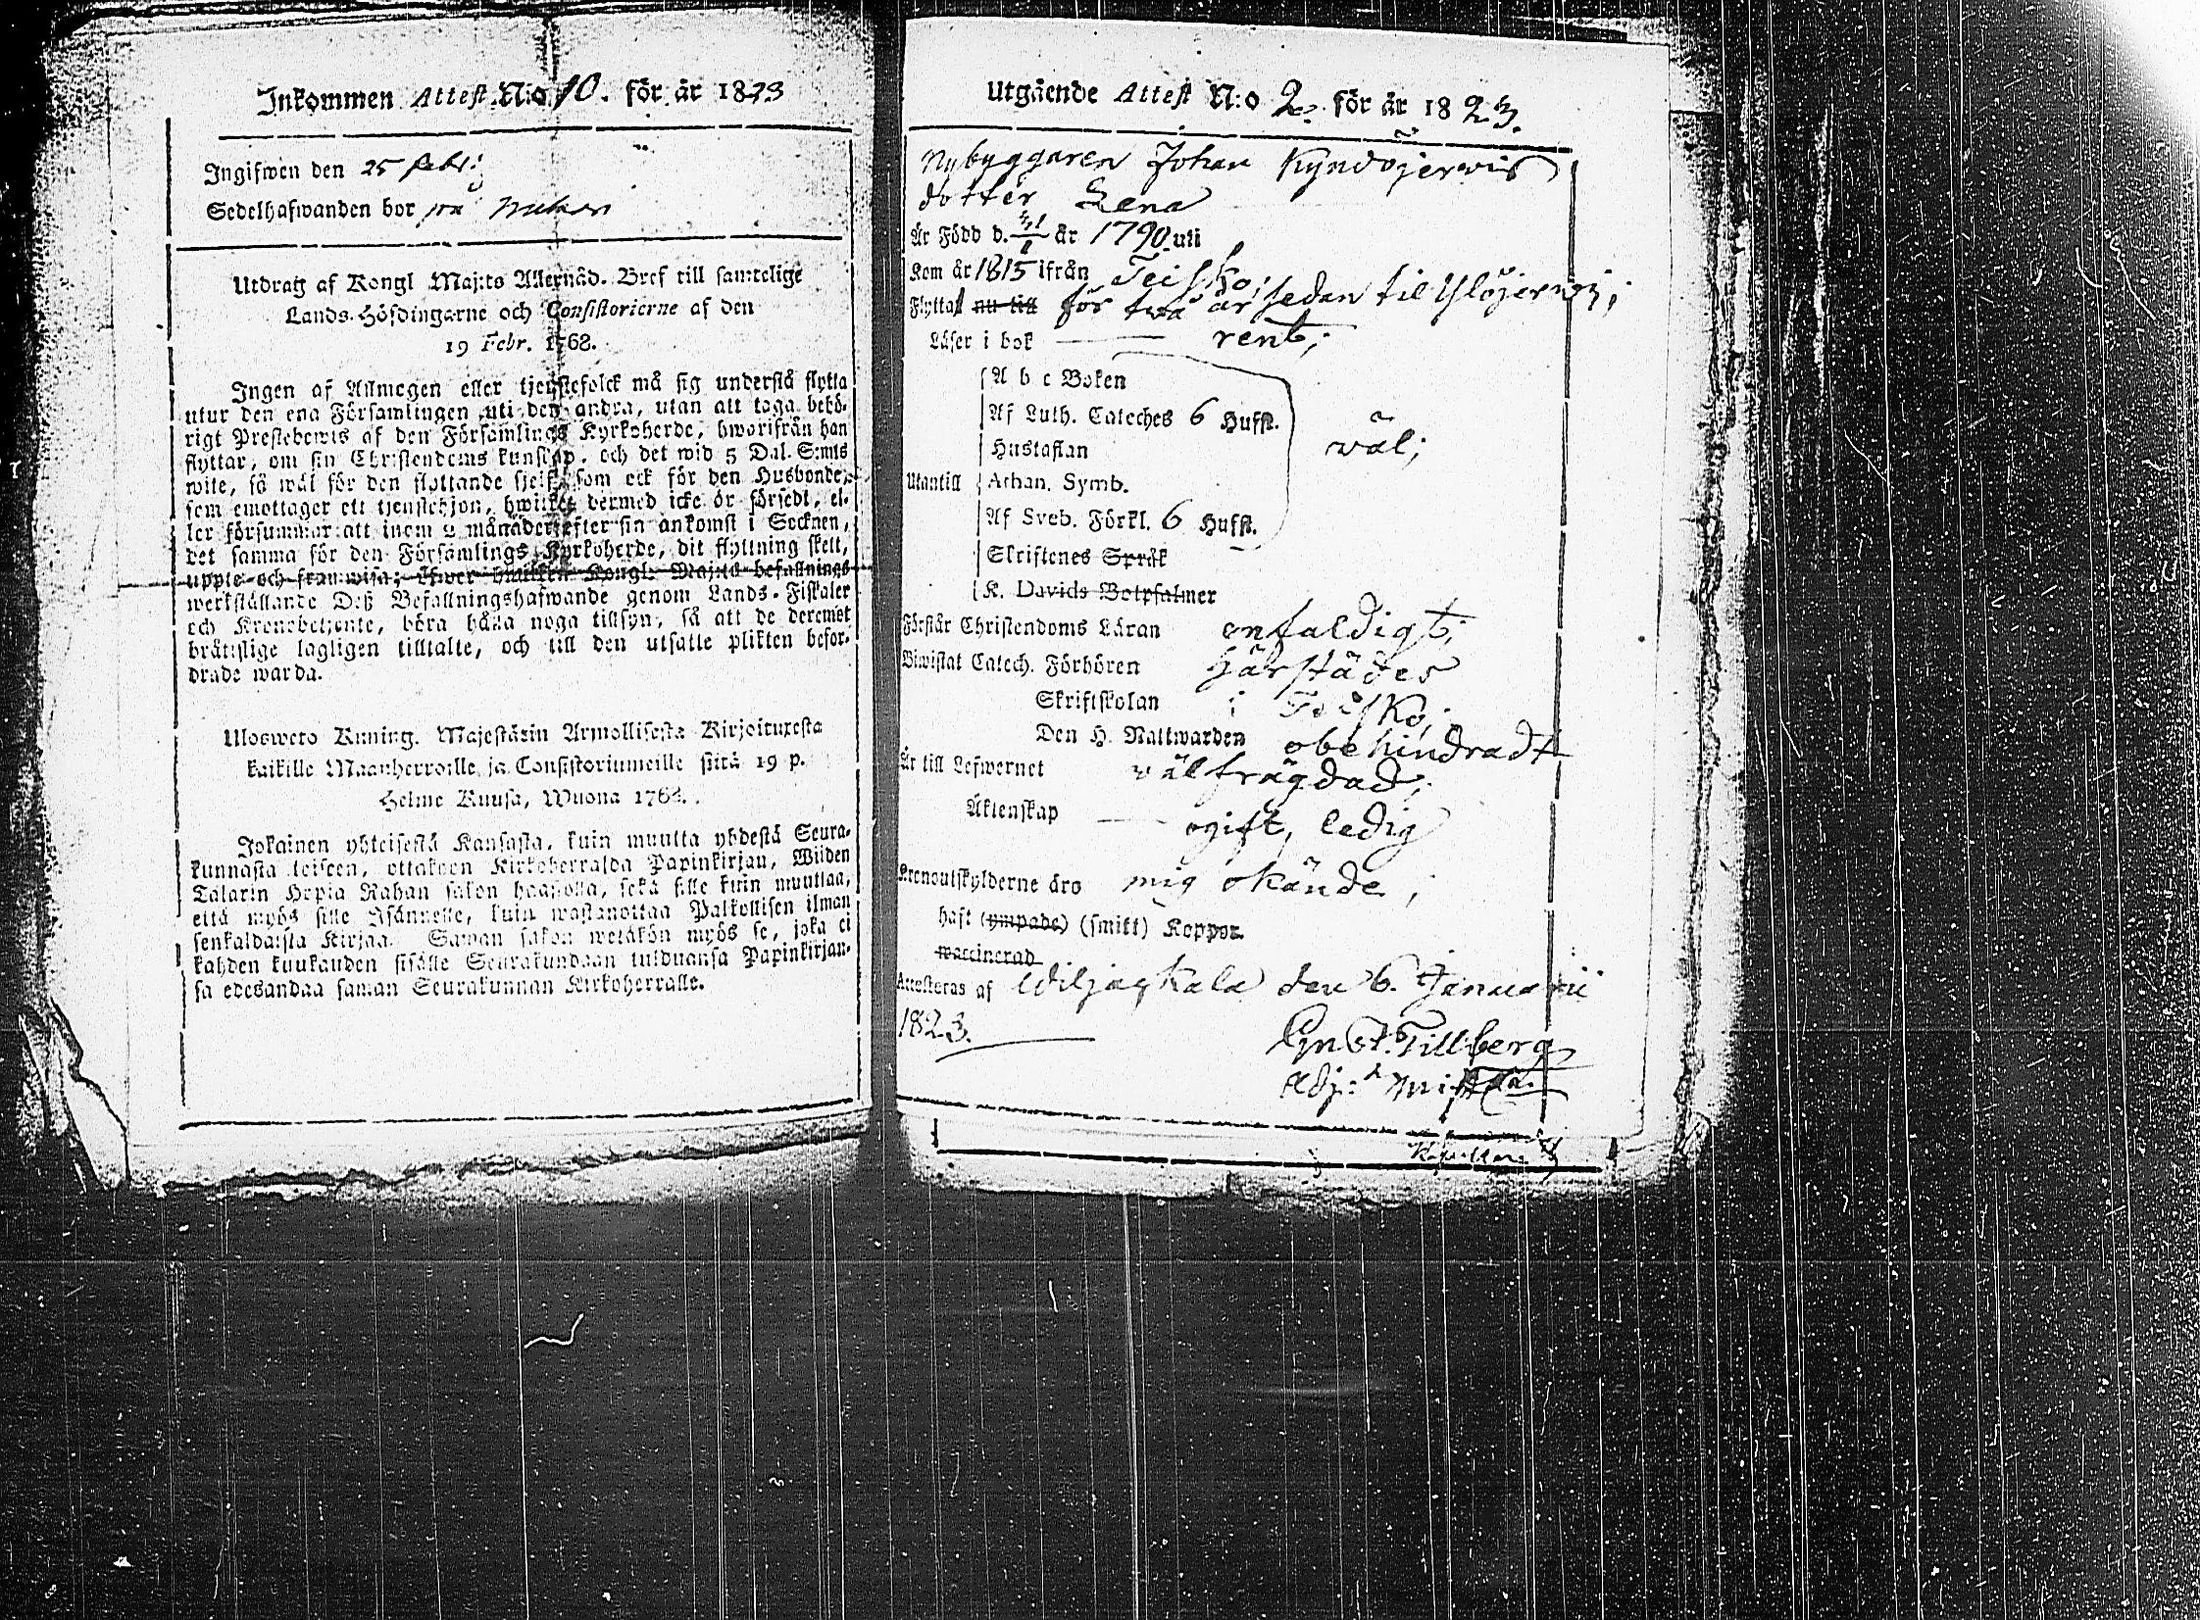 Inkommen Attest N:o 10. för år 1823
Ingifwen den 25 febr:
Sedelhafwanden bor på
Utdrag af Kongl Maj:ts Allernåd. Bref till samtelige
Lands-Höfdingarne och Consistorierne af den
19 Febr. 1768.
Ingen af Allmogen eller tjenstefolck må sig understå flytta
utur den ena Församlingen uti den andra, utan att taga behö-
rigt Prestebewis af den Församlings Kyrkoherde, hwarifrån han
flyttar, om sin Christendoms kunskap, och det wid 5 Dal. S:mts
wite, så wäl för den flyttande sjelf, som ock för den Husbonde,
som emottager ett tjenstehjon, hwilket dermed icke är försedt, el-
ler försummar att inom 2 månader efter sin ankomst i Socknen,
det samma för den Församlings Kyrkoherde, dit flyttning skett,
uppte och framwisa; öfwer hwilken Kongl. Maj:ts befallnings
werkställande Deß Befallningshafwande genom Lands-Fiskaler
och Kronobetjente, böra hålla noga tillsyn, så att de deremot
bråttslige lagligen tilltalte, och till den utsatte plikten befor-
drade warda.
Ulosweto Kuning. Majestätin Armollisesta Kirjoituxesta
kaikille Maanherroille ja Consistoriumeille siitä 19 p.
Helme Kuusa, Wuona 1768.
Jokainen yhteisestä Kansasta, kuin muutta yhdestä Seura-
kunnasta toiseen, ottakoon Kirkoherralda Papinkirjan, Wiiden
Talarin Hopia Rahan sakon haastolla, sekä sille kuin muuttaa,
että myös sille Isännelle, kuin wastanottaa Palkollisen ilman
senkaldaista Kirjaa. Saman sakon wetäkön myös se, joka ei
kahden kuukauden sisälle Seurakundaan tulduansa Papinkirjan-
sa edesandaa saman Seurakunnan Kirkoherralle.
Utgående Attest N:o 2. för år 1823.
Nybyggaren Johan Kyndöjerwis
dotter Lena
Är Född d. år 1790 uti
Kom år 1815 ifrån Teisko,
Flyttat nu till för twå år sedan til Ylöjerwi;
Läser i bok rent;
A b c Boken
Af Luth. Cateches 6 Hufst.
Hustaflan wäl;
Utantill Athan. Symb.
Af Sveb. Förkl. 6 Hufst.
Skriftenes Språk
K. Davids Botpsalmer
Förstår Christendoms Läran enfaldigt;
Biwistat Catech. Förhören härstädes
Skriftskolan i Teisko;
Den H. Nattwarden obehindradt
Är till Lefwernet wälfrägdad;
Äktenskap ogift, ledig
Kronoutskylderne äro mig okände;
haft (ympade) (smitt) Koppor
waccinerad
Attesteras af Wiljagkala den 6. Januarii
1823.
Tillberg
Adj: